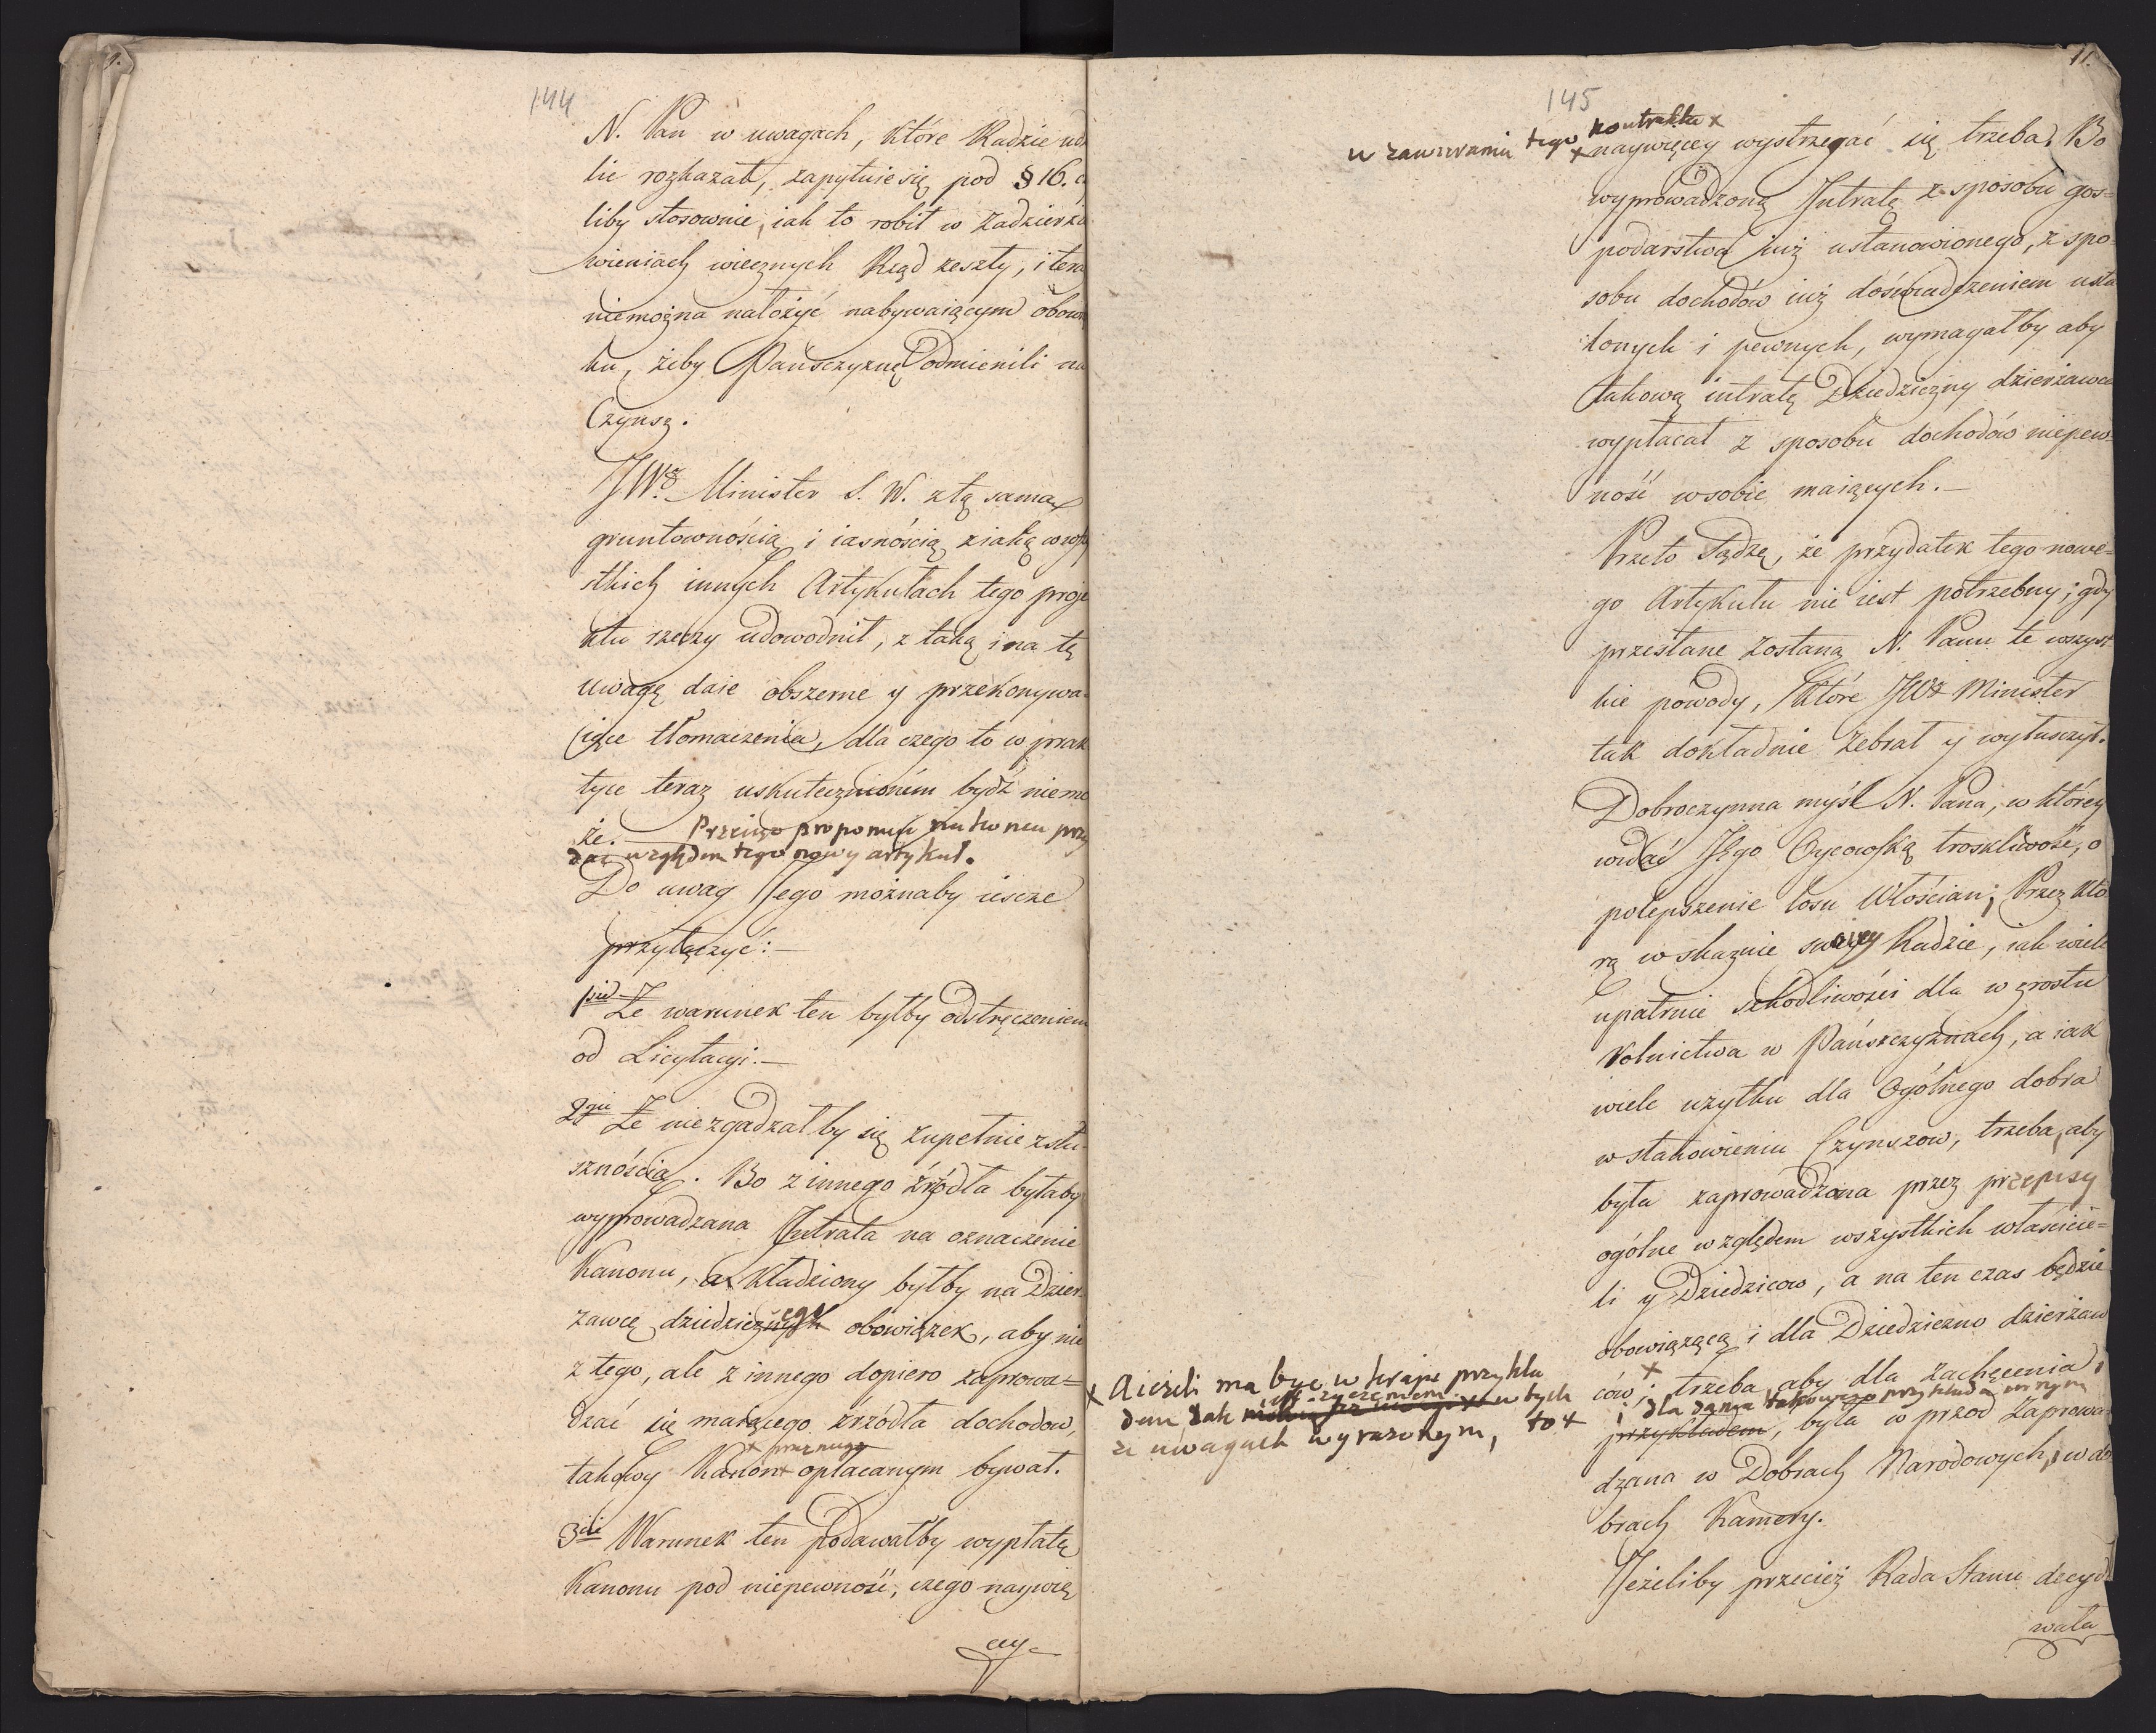 144
N. Pan w uwagach, które Radzie ud
lić rozkazał, zapytuie się pod § 16. c
liby stosownie, iak to robił w Zadzierża
wieniach wiecznych Rząd zeszły, i tera
niemożna nałożyć nabywaiącym obow
ku, żeby Pańszczyznę Odmienili na
Czynsz.
JWż. Minister S. W. z tą samą
gruntownością i iasnością z iaką w wszy
stkich innych Artykułach tego proje
ktu rzeczy udowodnił, z taką i na tę
uwagę daie obszerne y przekonywa-
iące tłomaczenia, dla czego to w prak
tyce teraz uskutecznioném bydź niemo
że. Przeięto proponuie na końcu przy
dać względem tego nowy artykuł.
Do uwag Jego możnaby iescze
przyłączyć:—
1sze Że warunek ten byłby odstręczeniem
od Licytacyi.—
2gie Że niezgadzałby się zupełnie z słu-
sznością. Bo z innego źródła byłaby
wyprowadzana Intrata na oznaczenie
Kanonu, a kładziony byłby na Dzier-
żawcę dziedzicznego obowiązek, aby nie
z tego, ale z innego dopiero zaprowa=
dzać się maiącego źrzódła dochodów,
x przez niego
takowy Kanon x opłacanym bywał.
3cie Warunek ten podawałby wypłatę
Kanonu pod niepewność, czego naywię
cey
11.
145
w zawieraniu tego kontraktu x
x naywięcey wystrzegać się trzeba. Bo
wyprowadzoną Intratę z sposobu gos=
podarstwa iuż ustanowionego, z spo=
sobu dochodów iuż doświadczeniem usta
lonych i pewnych, wymagałby aby
takową intratę Dziedziczny dzierżawca
wypłacał z sposobu dochodów niepew=
ność w sobie maiących.—
Przeto Sądzę, że przydatek tego nowe=
go Artykułu nie iest potrzebny; gdy
przesłane zostaną N. Panu te wszyst
kie powody, które JWż Minister
tak dokładnie zebrał y wyłusczył.
Dobroczynna myśl N. Pana, w którey
widać Jego Oycowską troskliwość, o
polepszenie losu Włościan; Przez któ
rą wskazuie swoiey Radzie, iak wiele
upatruie szkodliwości dla wzrostu
Rolnictwa w Pańszczyznach, a iak
wiele użytku dla Ogólnego dobra
w stanowieniu Czynszow, trzeba, aby
była zaprowadzona przez przepisy
ogólne względem wszystkich właścicie=
li y Dziedzicow, a na ten czas będzie
obowiązącą i dla Dziedziczno dzierżaw
ców; x trzeba aby dla zachęcenia,
i dla dania takowego przykładu innym
przykładem, była w przod Zaprowa
dzana w Dobrach Narodowych, i w do
brach Kamery.
Jeżeliby przecież Rada Stanu decydo
wała
x A ieżeli ma być w kraju przykła
dem iak życzeniem w tych
ze uwagach wyrażonym, to x